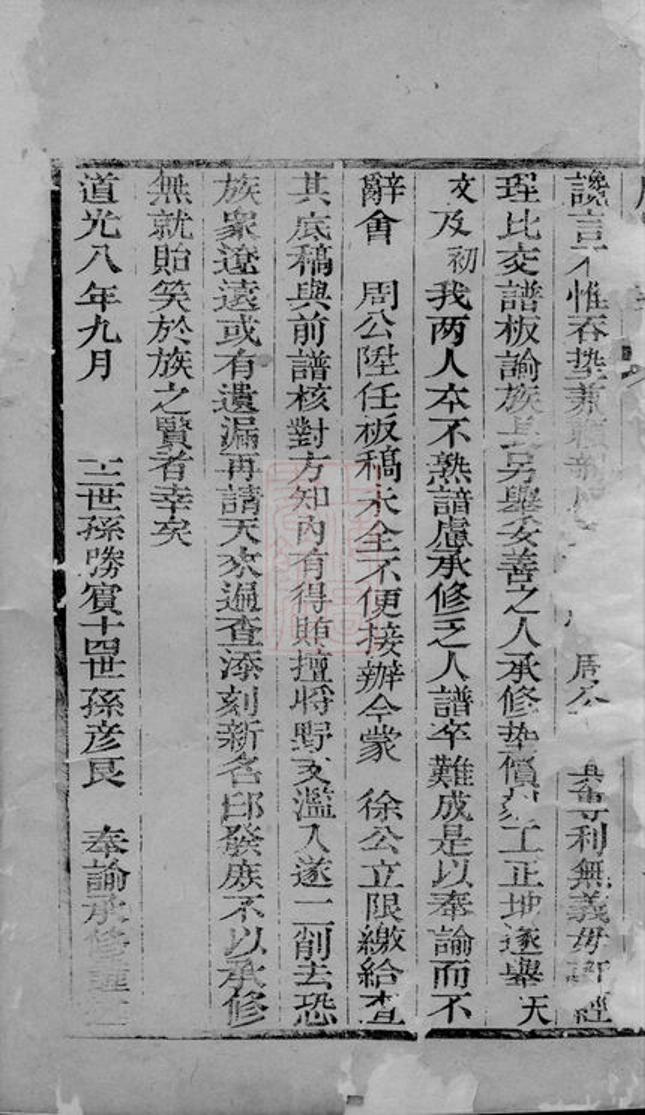 讒言不惟吞墊兼 周公 專利無義毋許經
理比交譜板諭族長另舉妥善之人承修墊償刻工正坤遂舉 天
文及初我两人本不熟諳慮承修乏人譜卒難成是以奉諭而不
辭會 周公陞任板稿未全不便接辦今蒙 徐公立限繳給查
其底稿與前譜核對方知內有得賄擅將野支濫入遂一一削去恐
族衆遼遠或有遺漏再請天來遍查添刻新名卽發庶不以承修
無就貽笑於族之賢者幸矣
道光八年九月 十三世孫勝賓十四世孫彦良 奉諭承修謹